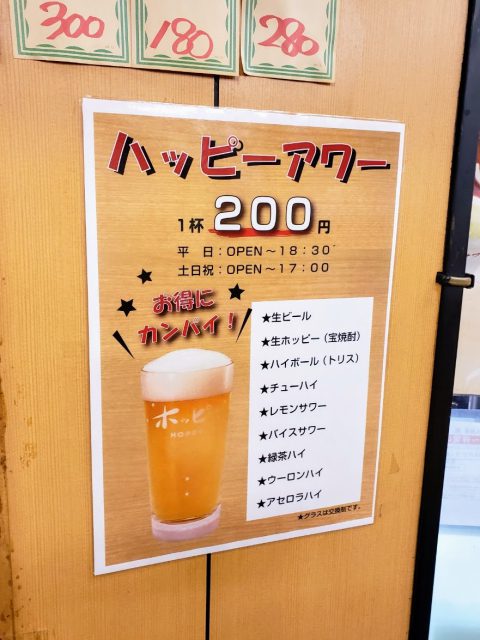 300
180
280
ハッピーアワー
1杯 200円
平 日：OPEN～18：30
土日祝：OPEN～17：00
お得に
カンパイ！
★生ビール
★生ホッピー（宝焼酎）
★ハイボール（トリス）
★チューハイ
★レモンサワー
★バイスサワー
★緑茶ハイ
★ウーロンハイ
★アセロラハイ
★グラスは交換制です。
ホッピ
HOPPY